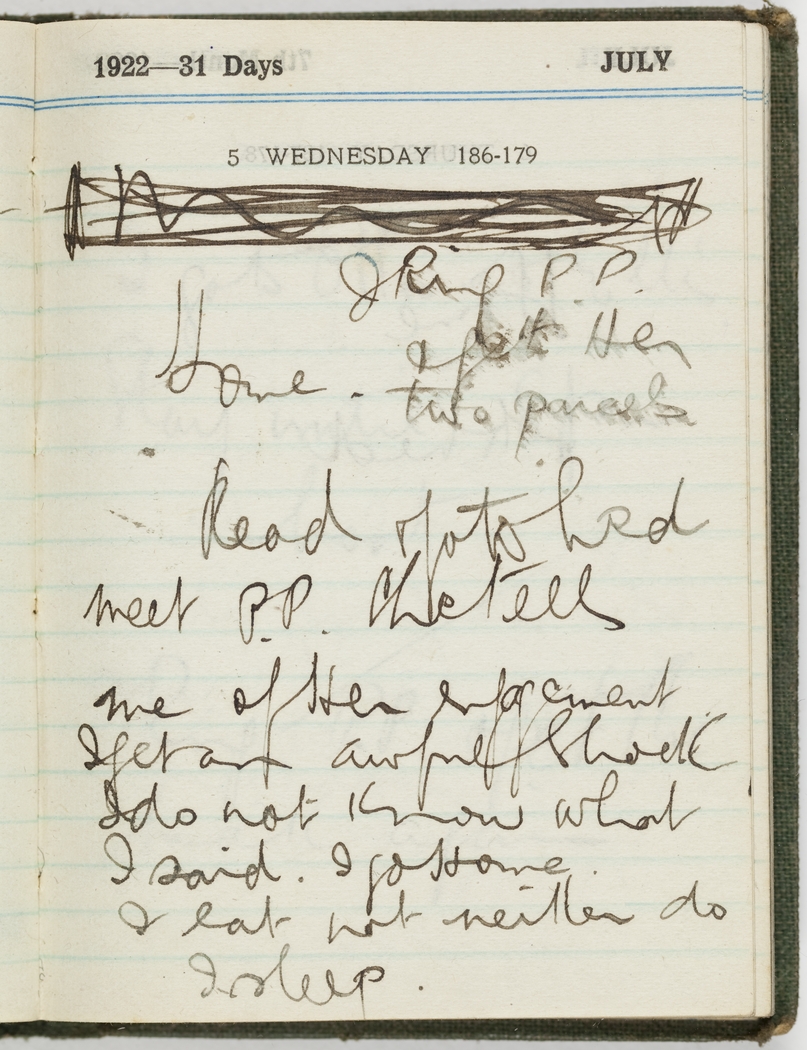 1922—31 Days JULY
5 WEDNESDAY 186-179
I Ring P.P.
Home. I get Her
two parcels
Read
meet P.P. She tells
me of Her engagement.
I get an awful Shock
I do not Know what
I said. I go Home.
I eat not neither do
I sleep.